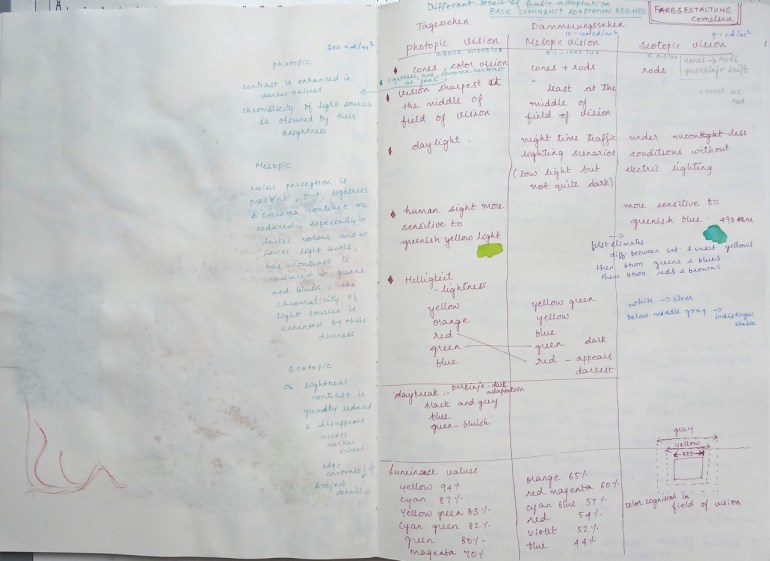 Photopic
200 cd/m²
contrast is enhanced in
darker values
chromaticity of light sources
is obscured by their
brightness
Mesopic
color perception is
present, but, lightness
& chroma contrast are
reduced, especially in
darker colors and at
lower light levels,
hue contrast is
reduced in greens
and blues, the
chromaticity of
light sources is
accented by their
dimness
Scotopic
lightness
contrast is
greatly reduced
& disappears
across
darker
values
contrast ↓
details ↓
Different levels of Basic adaptation
BASIC LUMINANCE ADAPTATION REGIMES
FARBGESTALTUNG
Cornelsen
Tagessehen
Dämmerungssehen
photopic vision
Mesopic vision
scotopic vision
cones, color vision
lightness, hue, & chroma contrast
at peak
cones + rods
rods
cones → rods
purkinje shift
red
vision sharpest at
the middle of
field of vision
least at the
middle of
field of vision
daylight
night time traffic
lighting scenarios
(low light but
not quite dark)
under moonlight less
conditions without
electric lighting
human sight more
sensitive to
greenish yellow light
more sensitive to
greenish blue - 498 nm
first eliminates
diff between sat. & unsat yellows
then btwn greens & blues
then btwn reds & browns
Helligkeit
- lightness
yellow
orange
red
green
blue
yellow green
yellow
blue
green dark
red - appears
darkest
white → silver
below middle gray → indistinguishable
daybreak :- purkinje - dark
adaptation
black and grey
blue
green - bluish
Luminance values
yellow 94%
cyan 87%
Yellow green 83%
Cyan green 82%
green 80%
magenta 70%
orange 65%
red magenta 60%
cyan blue 57%
red 54%
violet 52%
blue 44%
gray
yellow
RED
color cognition in
field of vision